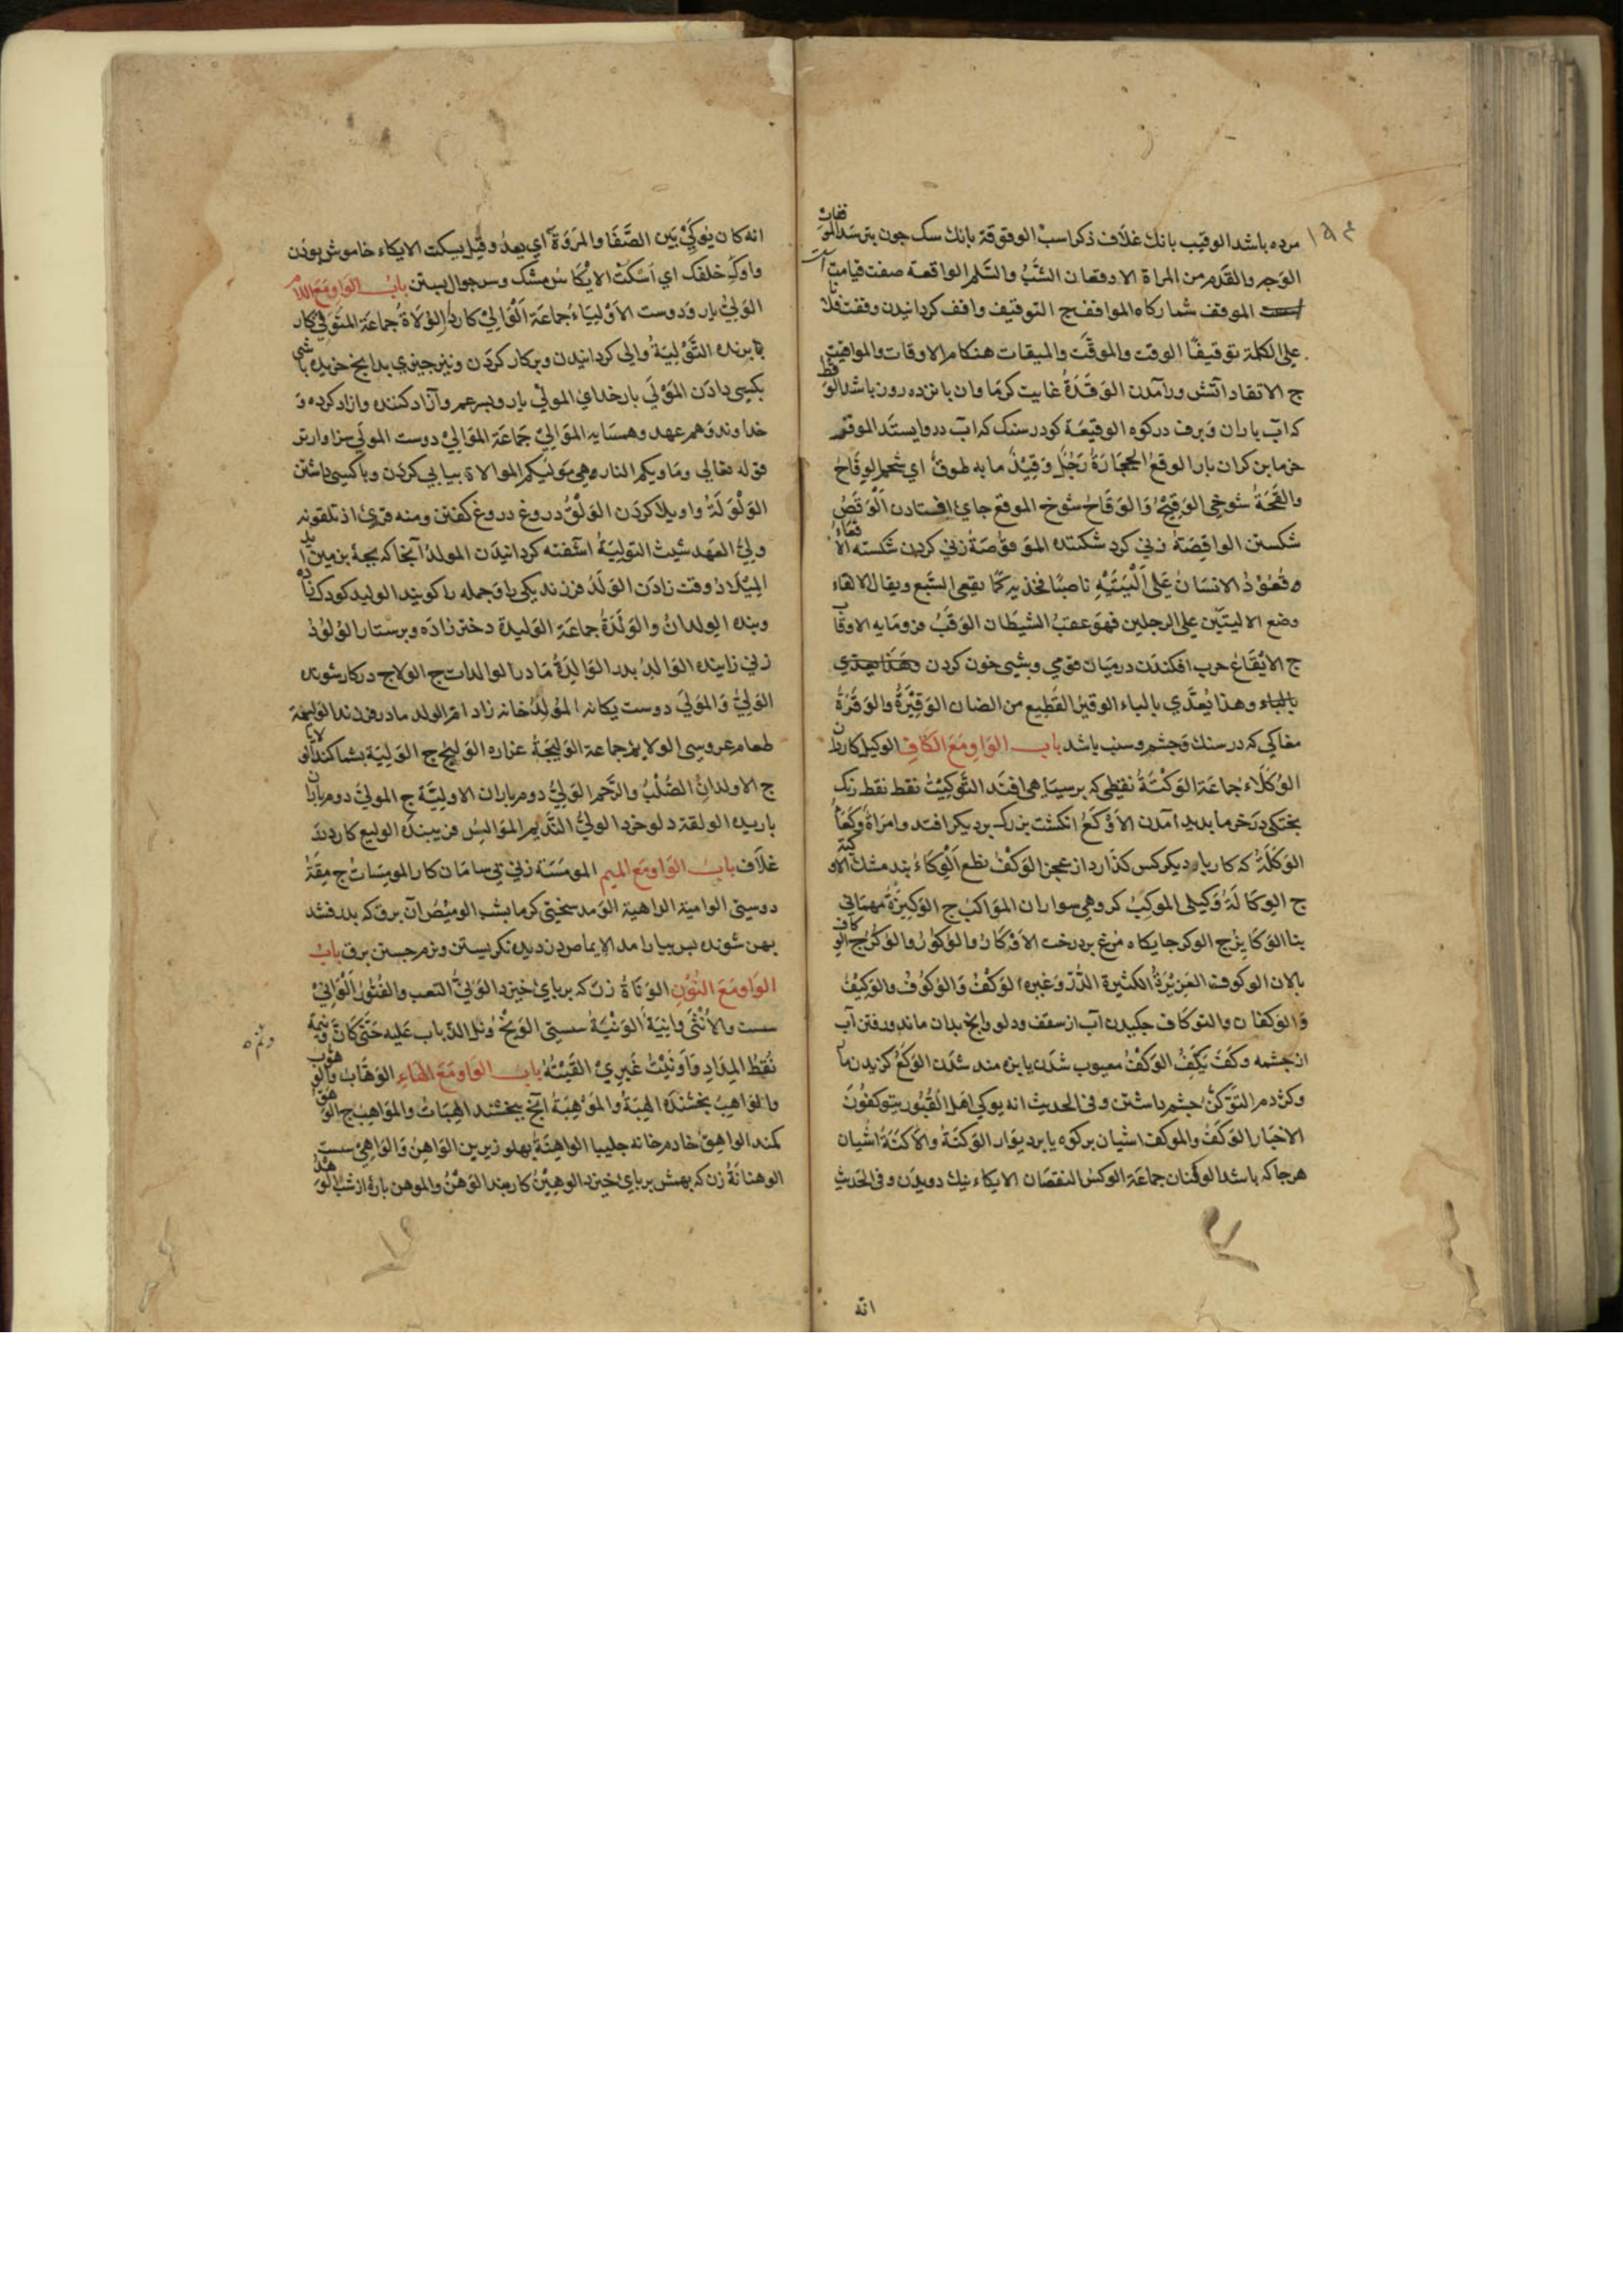 مرده باشد الوقیب بانك غلاف ذكر اسبْ الوقوقة بانك سك جون بترسد الوَقفات
الوَجه والقدم من المراة الا وقعان الشَّبُّ والسَّلم الواقعة صفت قیامت
الموقف شمار كاه المواقف ج التوقیف واقف كردانیدن وقفت فلانا
على الكلمة توقیفًا الوقت والموقَّت والمیقات هنكام الاوقات والمواقیت
ج الاتقاد آتش درآمدن الوَقَدَةُ غایت كرما وان پانزده روز باشد الوَقط
كه آب باران وبرف در كوه الوقیعَة كو در سنك كه آب درو ایستد الموقّم
خرما بن كران بار الوقعُ الحجَارَةُ رَجُل وَقِیْذٌ ما به طوقٌ اي شحم الوِقَاحُ
والقَحَةُ شوخی الوَقِیحُ وَالوَقَاحُ شوخ الموقع جاي افتادن اَلْوَقصُ
شكستن الواقِصَةُ زنی كردن شكسته المَوقُوصَةُ زنی كردن شكسته الاقعَاءُ
وَقُعُوْدُ الانسَان عَلى اَلْیَتَیْهِ ناصبًا فخذیه كمَا یقعی السَّبع ویقال الاقعاء
وضع الالیتَین على الرجلین فهوَ عقبُ الشیطان الوَقبُ فرومایه الاوقاب
ج الایْقَاعُ حرب افكندن درمیان قومی وشبی خون كردن
بالباء وهذا یُعدَّي بالباء الوقیر القَطِیع من الضان الوَقِیْرَةُ والوَقْرَةُ
مغاكی كه در سنك وَجشم وسنب باشد باب الوَاو مَعَ الكَافِ الوكیل كاردان
الوُكَلَاءُ جماعَة الوَكْتَةُ نقطی كه بر سیاهی افتد التَّوكِیْتُ نقط نقط رنك
بختكی در خرما بدید آمدن الاَوْكَعُ انكشت بزرك بر دیكر افتد وامراة وَكْعَاُ
الوَكَلَةُ كه كار بار دیكر كس كذارد از عجز الوَكْفُ نطع اَلْوِكَاءُ بند مشك الاوكیة
ج الوِكَالَةُ وَكیلی الموكِبُ كروهی سواران المَوَاكبُ ج الوَكِیْرَةُ مهمانی
بنا الوَكَایِرُ ج الوكر جایكاه مُرغ بر درخت الاَوْكَارُ والوُكُورُ والوُكُرُ ج الوكاف
پالان الوكوف العَزِیْرَةُ الكثیرة الدَّرّ وَغیره الوَكْفُ وَالوُكُوْفُ والوَكِیْفُ
وَالوكفان والتوكاف جكیدن آب از سقف ودلو وانج بدان ماند ورفتن آب
از جشمه وكَفَ یَكِفُ الوَكْفُ معیوب شدن یا بزه مند شدن الوَكعُ كزیدن مار
وكژدم التوَكّفُ جشم داشتن وفی الحدیث انه یوكی اهل القُبُور یتوكفُونَ
الاخبار الوَكفُ والموكف اشیان بر كوه یا بر دیوار الوَكنَةُ والاكنَةُ اشیان
هر جا كه باشد الوكْنَان جماعة الوكسُ النقصان الایكاء نیك دویدن وفی الحدیثِ
انه
انه كان یُوكِيْ بَین الصَّفَا والمَروَةَ اي یعدُو وقیل یسكت الایكاء خاموش بودن
واوكِ خلفك اي اَسْكُتْ الاِیْكَاء سر مشك وسر جوال بستن بابُ الوَاو مَعَ اللام
الوَلِيُّ یار وَدوست الاَوْلِیَاءُ جماعَة اَلْوَالِيْ كاردار الوُلَاةُ جماعَة المتَوَلِّيْ كار
برنده التَّوْلِیَةُ والی كردانیدن وبر كار كردن ونیز جیزی بدانج خریده باشی
بكسی دادن المَوْلَي بار خداي المولَي یار وپسر عم وآزاد كننده وازاد كرده وَ
خداوند وَهم عهد وهمسَایه المَوَالِيْ جَمَاعَة المَوَالِيْ دوست المولَي سزاوارتر
قوله تعالی ومَاویكم النار هِي مَوْلیكم الموالاة بیابی كردن وباكسی داشتن
الوَلْوَلَةُ واویلا كردن الوَلْقُ دروغ دروغ كفتن ومنه قریُ اذ تلقونه
ولِيُّ العهد شیث التولِیَةُ آشفته كردانیدن المولدُ آنجا كه بجهٔ بزمین اید
المِیْلَادُ وقت زادن الوَلَدُ فرزند یكی یا وَجمله را كویند الولید كودك زاده
وبنده الوِلدانُ والوَلْدَةُ جماعَة الوَلیدة دختر زادَه وپرستار الوَلُوْدُ
زنی زاینده الوَالدُ پدر الوَالِدَةُ مَادر الوالدات ج الولاج در كار شونده
الوَلِيُّ وَالمَوْلَي دوست یكانه المُوَلَّدُ خانه زاد ام الولد مادر فرزند الوَلیمَة
طعام عروسی الولایم جماعَة الوَلِیْجَةُ غراره الوَلیْجُ ج الوَلیَة بشماكند الولایا
ج الاولدانِ الصُّلْبُ والرَّحم الوَلِيُّ دوم باران الاولیَّة ج المولِيّ دوم باران
باریده الولقة دلو خرد الوليُّ القَدیم المَوَالِسُ فریبنده الولیع كارد بند
غلاف بابُ الوَاو مَعَ المیم المومسَة زنی بی سامَان كار المومِسَاتُ ج مِقَةُ
دوستی الوامیَة الداهیة الوَمد سختی كرما بشب الومیْضُ آن برق كه بدرفشد
بهن شونده بسر بیارامد الایماض دزدیده نكریستن ونرم جستن برق بابُ
الوَاو مَعَ النُّوْنِ الوَنَاةُ زنی كه برپاي خیزد الوَنِيُّ التعب والفُتُورُ اَلْوَانِيْ
سست والاُنثَی وانِیَةُ الوَنْیَةُ سستی الوَنِیْمُ وَنَمَ الذباب عَلیه حَتَّی كَانَّ وَنِیمَهُ
نُقَطُ المِدَادِ وَاَوْنَیْتُ غَیرِيْ القَیْتُهُ بابُ الوَاو مَعَ الهَاءِ الوَهّابُ والوَهُوْبُ
والوَاهِبُ بخشنده الهِبَةُ والمَوْهِبَةُ انج ببخشند الهِبَاتُ والمَوَاهِبُ ج الوَهَقُ
كمند الواهِقُ خادم خانه جلیپا الواهِنَةُ پهلو زیرین الوَاهِنُ وَالوَاهِيْ سست
الوهنانَةُ زن كه بهش برپاي خیزد الوهِیْنُ كاربند الوَهْنُ والموهن پارهٔ از شب الوَهْدُ